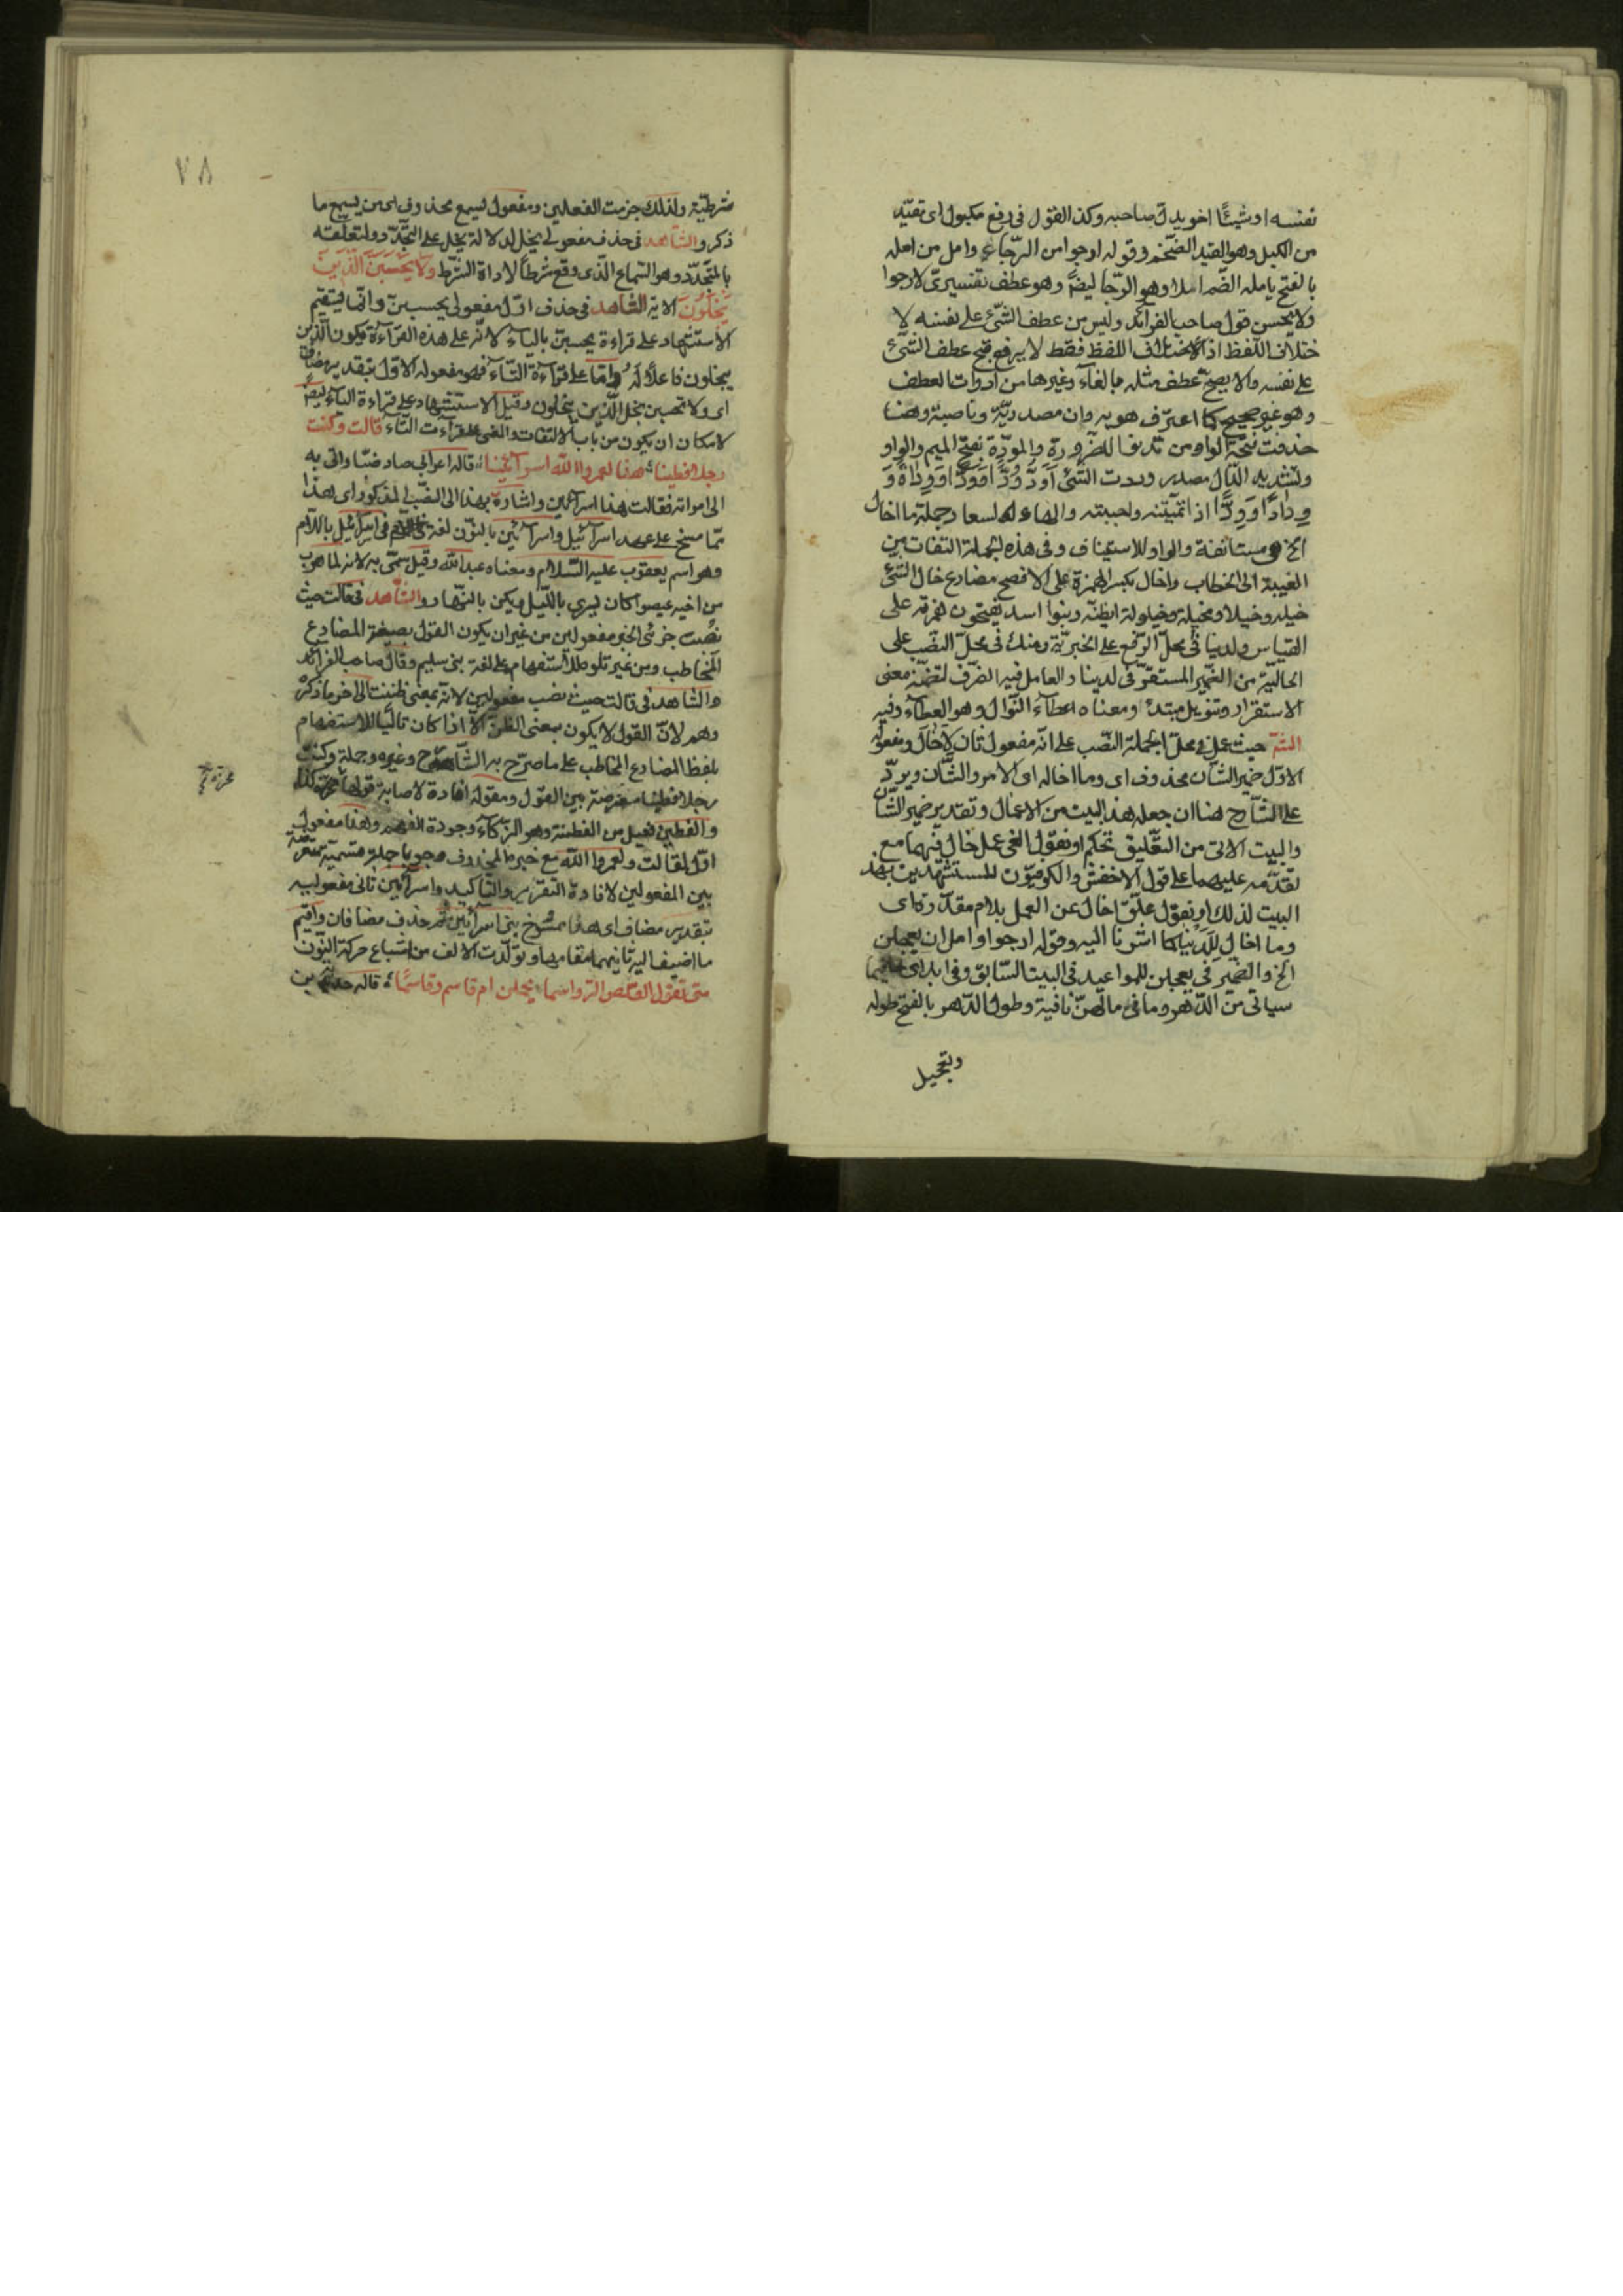 نفسه او شيئًا اخر يدق صاحبه وكذا القول في رفع مكبول اى تقيّد
من الكبل وهو القيد الضخم وقوله ارجوا من الرّجاء وامل من امله
بالفتح يامله الضم املا وهو الرّجا ايضًا وهو عطف تفسيرىّ لارجوا
ولا يحسن قول صاحب الفرائد وليس من عطف الشّئ على نفسه لا
ختلاف اللّفظ اذ الاختلاف اللفظ فقط لا يرفع قبح عطف الشّئ
على نفسه والا يصحّ عطف مثله بالفاء وغيرها من ادوات العطف
وهو غير صحيح كما اعترف هو به وان مصدريّة وناصبة وهنا
حذفت فتحة الواو من تدنوا للضرورة والمودّة بفتح الميم والواو
وتشديد الدّال مصدر وددت الشّئ اودّ وُدًّا وَوَدًّا وَوِدَادَةً وَ
وِدادًا وَوِدًّا اذا تمنّيته واحببته والهاء له لسعاد وجملة ما اخال
الخ مستانفة والواو للاستيناف وفى هذه الجملة التفات من
الغيبة الى الخطاب واخال بكسر الهمزة على الافصح مضارع خال الشّئ
خيله وخيلا ومخيلة وخيلولة اى ظنّه وبنوا اسد يفتحون همزته على
القياس ولدينا فى محلّ الرّفع على الخبريّة ومنك فى محلّ النّصب على
الحاليّة من الضّمير المستقرّ فى لدينا والعامل فيه الظّرف لتضمّنه معنى
الاستقرار وتنويل مبتدء ومعناه اعطاء النّوال وهو العطاء وفيه
الشّ حيث عمل فى محلّ الجملة النّصب على انّه مفعول ثان لاخال ومفعوله
الاوّل ضمير الشّان محذوف اى وما اخاله اى الامر والشّان ويردّ
على الشّارح هنا ان جعله هذا البيت من الاعمال وتقدير ضمير الشّان
والبيت الاتى من التّعليق تحكم او نقول الغى عمل خال فيهما مع
تقدّمه عليهما على قول الاخفش والكوفيّون للمستشهدين بهذ
البيت لذلك او نقول علّق اخال عن العمل بلام مقدّرة اى
وما اخال للدينا كما اشرنا اليه وقوله ارجوا وامل ان يعجلن
الخ والضمير فى يعجلن للمواعيد فى البيت السّابق وفى ابد اى فيما
سياتى من الدّهر وما فى مالهنّ نافية وطول الدّهر بالفتح طوله
وتعجيل
٧٨
شرطيّة ولذلك جزمت الفعلين ومفعول يسمع محذوف اى من يسمع ما
ذكر والشّاهد فى حذف مفعولى يخل لدلالة يخل على التجدّد ولتعلّقه
بالمتجدّد وهو السّماع الّذى وقع شرطًا لاداة الشّرط وَلَا يَحْسَبَنَّ الَّذِينَ
يَبْخَلُونَ الاية الشّاهد فى حذف اوّل مفعولى يحسبنّ وانّما يستقيم
الاستشهاد على قراءة يحسبنّ بالياء لانّه على هذه القراءة يكون الّذين
يبخلون فاعلًا له واما على قراءة التّاء فهو مفعوله الاوّل بتقدير مضاف
اى ولا تحسبن بخل الّذين يبخلون وقيل الاستشهاد على قراءة التاء ايضًا
لامكان ان يكون من باب الالتفات والغى على قراءت التّاء قالت وكنت
رجلا فطينا هذا لعمر الله اسرائينا قاله اعرابى صاد ضبّا واتى به
الى امراته فقالت هذا اسرائين واشارة بهذا الى الضّبّ المذكور اى هذا
ممّا مسخ على عهد اسرائيل واسرائين بالنّون لغة فى اسرائيل باللّام
وهو اسم يعقوب عليه السّلام ومعناه عبد الله وقيل سمّى به لانه لما هرب
من اخيه عيصوا كان يسرى بالليل ويكن بالنّهار والشّاهد فى قالت حيث
نصبت جزئى الخبر مفعولين من غير ان يكون القول بصيغة المضارع
المخاطب ومن غير تلوه للاستفهام على لغة بنى سليم وقال صاحب الفرائد
والشاهد فى قالت حيث نصب مفعولين لانّه بمعنى ظننت الى اخر ما ذكره
وهم لانّ القول لا يكون بمعنى الظنّ الا اذا كان تاليًا للاستفهام
بلفظ المضارع المخاطب على ما صرّح به الشّارح وغيره وجملة وكنت
رجلا فطينا معترضة بين القول ومقوله افادة لاصابة قولها
والفطين فعيل من الفطنة وهو الذّكاء وجودة الفهم وهذا مفعول
اوّل لقالت ولعمر الله مع خبره المحذوف وجوبا جملة قسميّة معترضة
بين المفعولين لافادة التقرير والتّاكيد واسرائين ثانى مفعوليه
بتقدير مضاف اى هذا ممسوخ بنى اسرائين ثم حذف مضافان واقيم
ما اضيف اليه ثانيهما مقامهما وتولّدت الالف من اشباع حركة النّون
متى تقول القلص الرّواسما يحملن ام قاسم وقاسمًا قاله هدبة بن